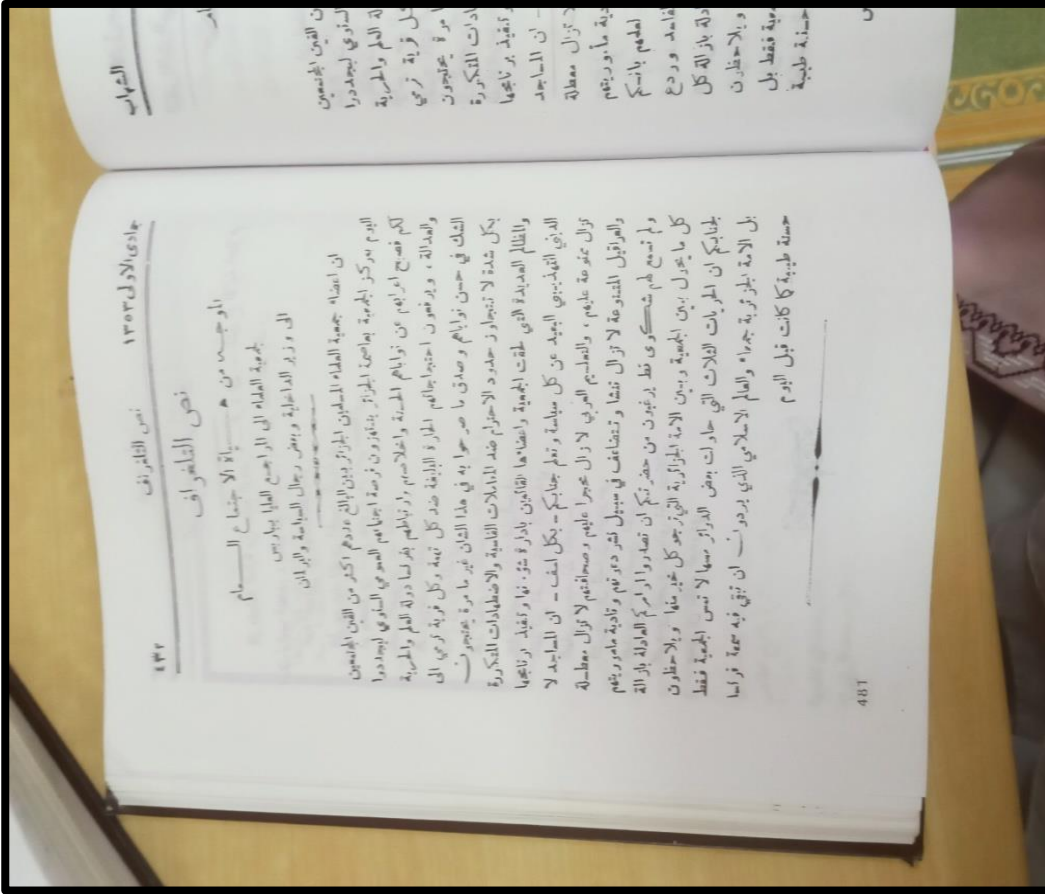 ٤٣٢ نص التلغراف جمادى الاولى ١٣٥٣
نص التلغراف
الموجه من هيئة الاجتماع العام
لجمعية العلماء الى المراجع العليا بباريس
الى وزير الداخلية وبعض رجال السياسة والبرلمان
ان اعضاء جمعية العلماء المسلمين الجزائريين البالغ عددهم اكثر من الفين المجتمعين
اليوم بمركز الجمعية بعاصمة الجزائر ينتهزون فرصة اجتماعهم العمومي السنوي ليجددوا
لكم فصيح اعرابهم عن نواياهم الحسنة واخلاصهم وارتباطهم بفرنسا دولة العلم والحرية
والعدالة ، ويرفعون احتجاجاتهم الحارة البليغة ضد كل تهمة وكل فرية ترمي الى
الشك في حسن نواياهم وصدق ما صرحوا به في هذا الشان غير ما مرة يحتجون
بكل شدة لا تتجاوز حدود الاحترام ضد المعاملات القاسية والاضطهادات المتكررة
والمظالم العديدة التي لحقت الجمعية واعضاءها القائمين بادارة شؤنها وتنفيذ برنامجها
الديني التهذيبي البعيد عن كل سياسة ونعلم جنابكم ـ بكل اسف ـ ان المساجد لا
تزال ممنوعة عليهم ، والتعليم العربي لا زال محجرا عليهم وصحافتهم لا تزال معطلة
والعراقيل المتنوعة لا تزال تنشأ وتتضاعف في سبيل نشر دعوتهم وتادية ماموريتهم
ولم تسمع لهم شكوى قط يرغبون من حضرتكم ان تصدروا اوامركم العادلة بازالة
كل ما يحول بين الجمعية وبين الامة الجزائرية التي ترجو كل خير منها ويلاحظون
لجنابكم ان الحريات الثلاث التي حاولت بعض الدوائر مسها لا تمس الجمعية فقط
بل الامة الجزائرية جمعاء والعالم الاسلامي الذي يودون ان تبقى فيه سمعة فرنسا
حسنة طيبة كما كانت قبل اليوم
481
الشهاب
ن الفين المجتمعين
السنوي ليجددوا
لة العلم والحرية
كل فرية ترمي
ما مرة يحتجون
ادات المتكررة
وتنفيذ برنامجها
ـ ان المساجد
لا تزال معطلة
دية مأموريتهم
حسنة طيبة